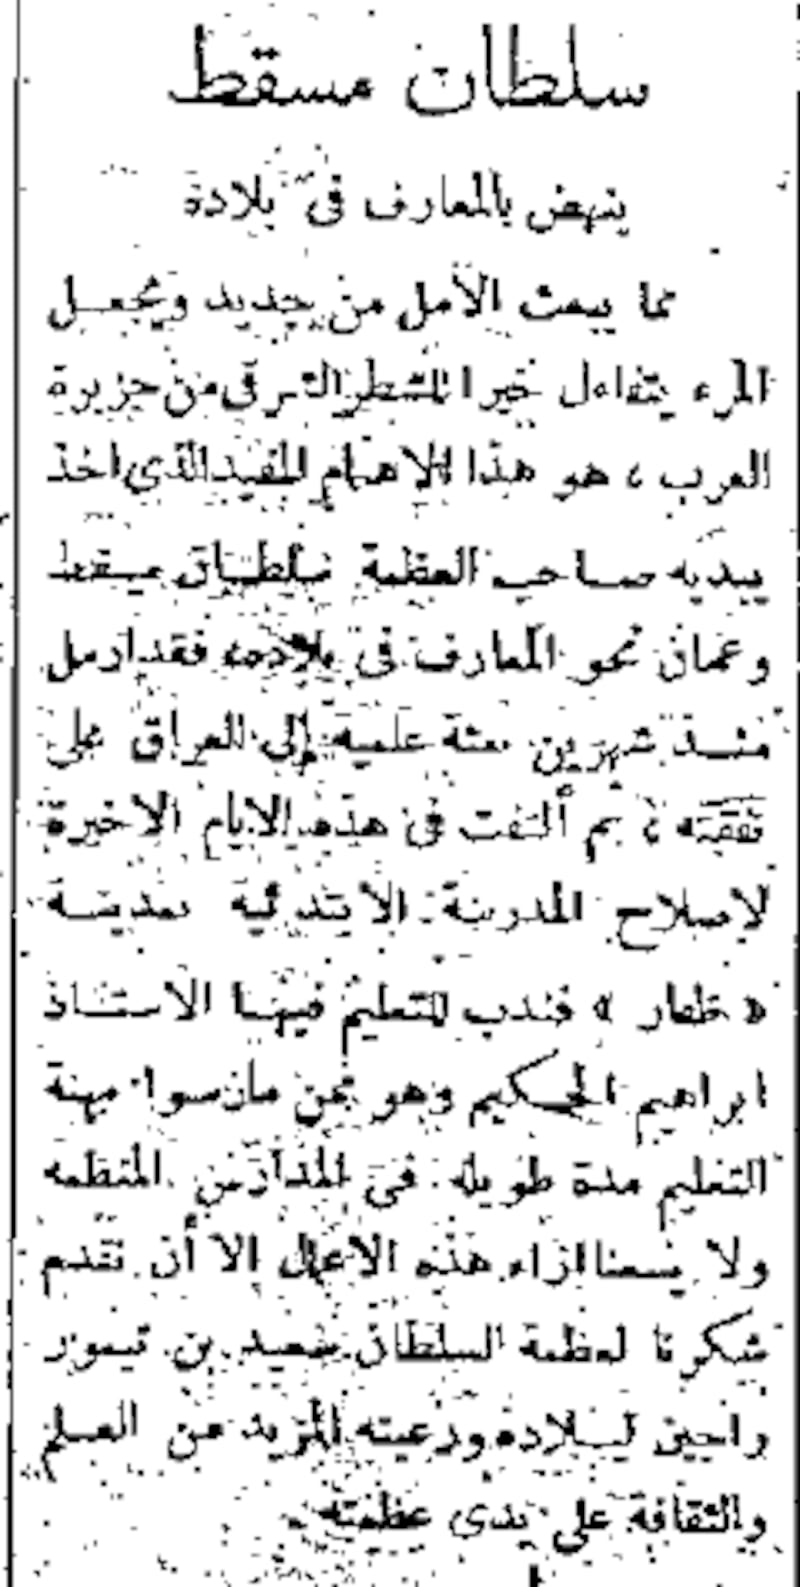 سلطان مسقط
ينهض بالمعارف فى بلادة
مما يبعث الأمل من جديد ويجعل
المرء يتفاءل خيرا للشطر الشرقى من جزيرة
العرب ، هو هذا الاهتمام المفيد الذي اخذ
يبديه صاحب العظمة سلطان مسقط
وعمان نحو المعارف فى بلاده، فقد ارسل
منذ شهرين بعثة علمية إلى العراق على
نفقته ، ثم ألتفت فى هذه الايام الاخيرة
لإصلاح المدرسة الابتدائية بمدينة
« ظفار » فندب للتعليم فيها الاستاذ
ابراهيم الحكيم وهو ممن مارسوا مهنة
التعليم مدة طويله فى المدارس المنظمه
ولا يسعنا ازاء هذه الاعمال إلا أن نقدم
شكرنا لعظمة السلطان سعيد بن تيمور
راجين لبلاده ورعيته المزيد من العلم
والثقافة على يدى عظمته .